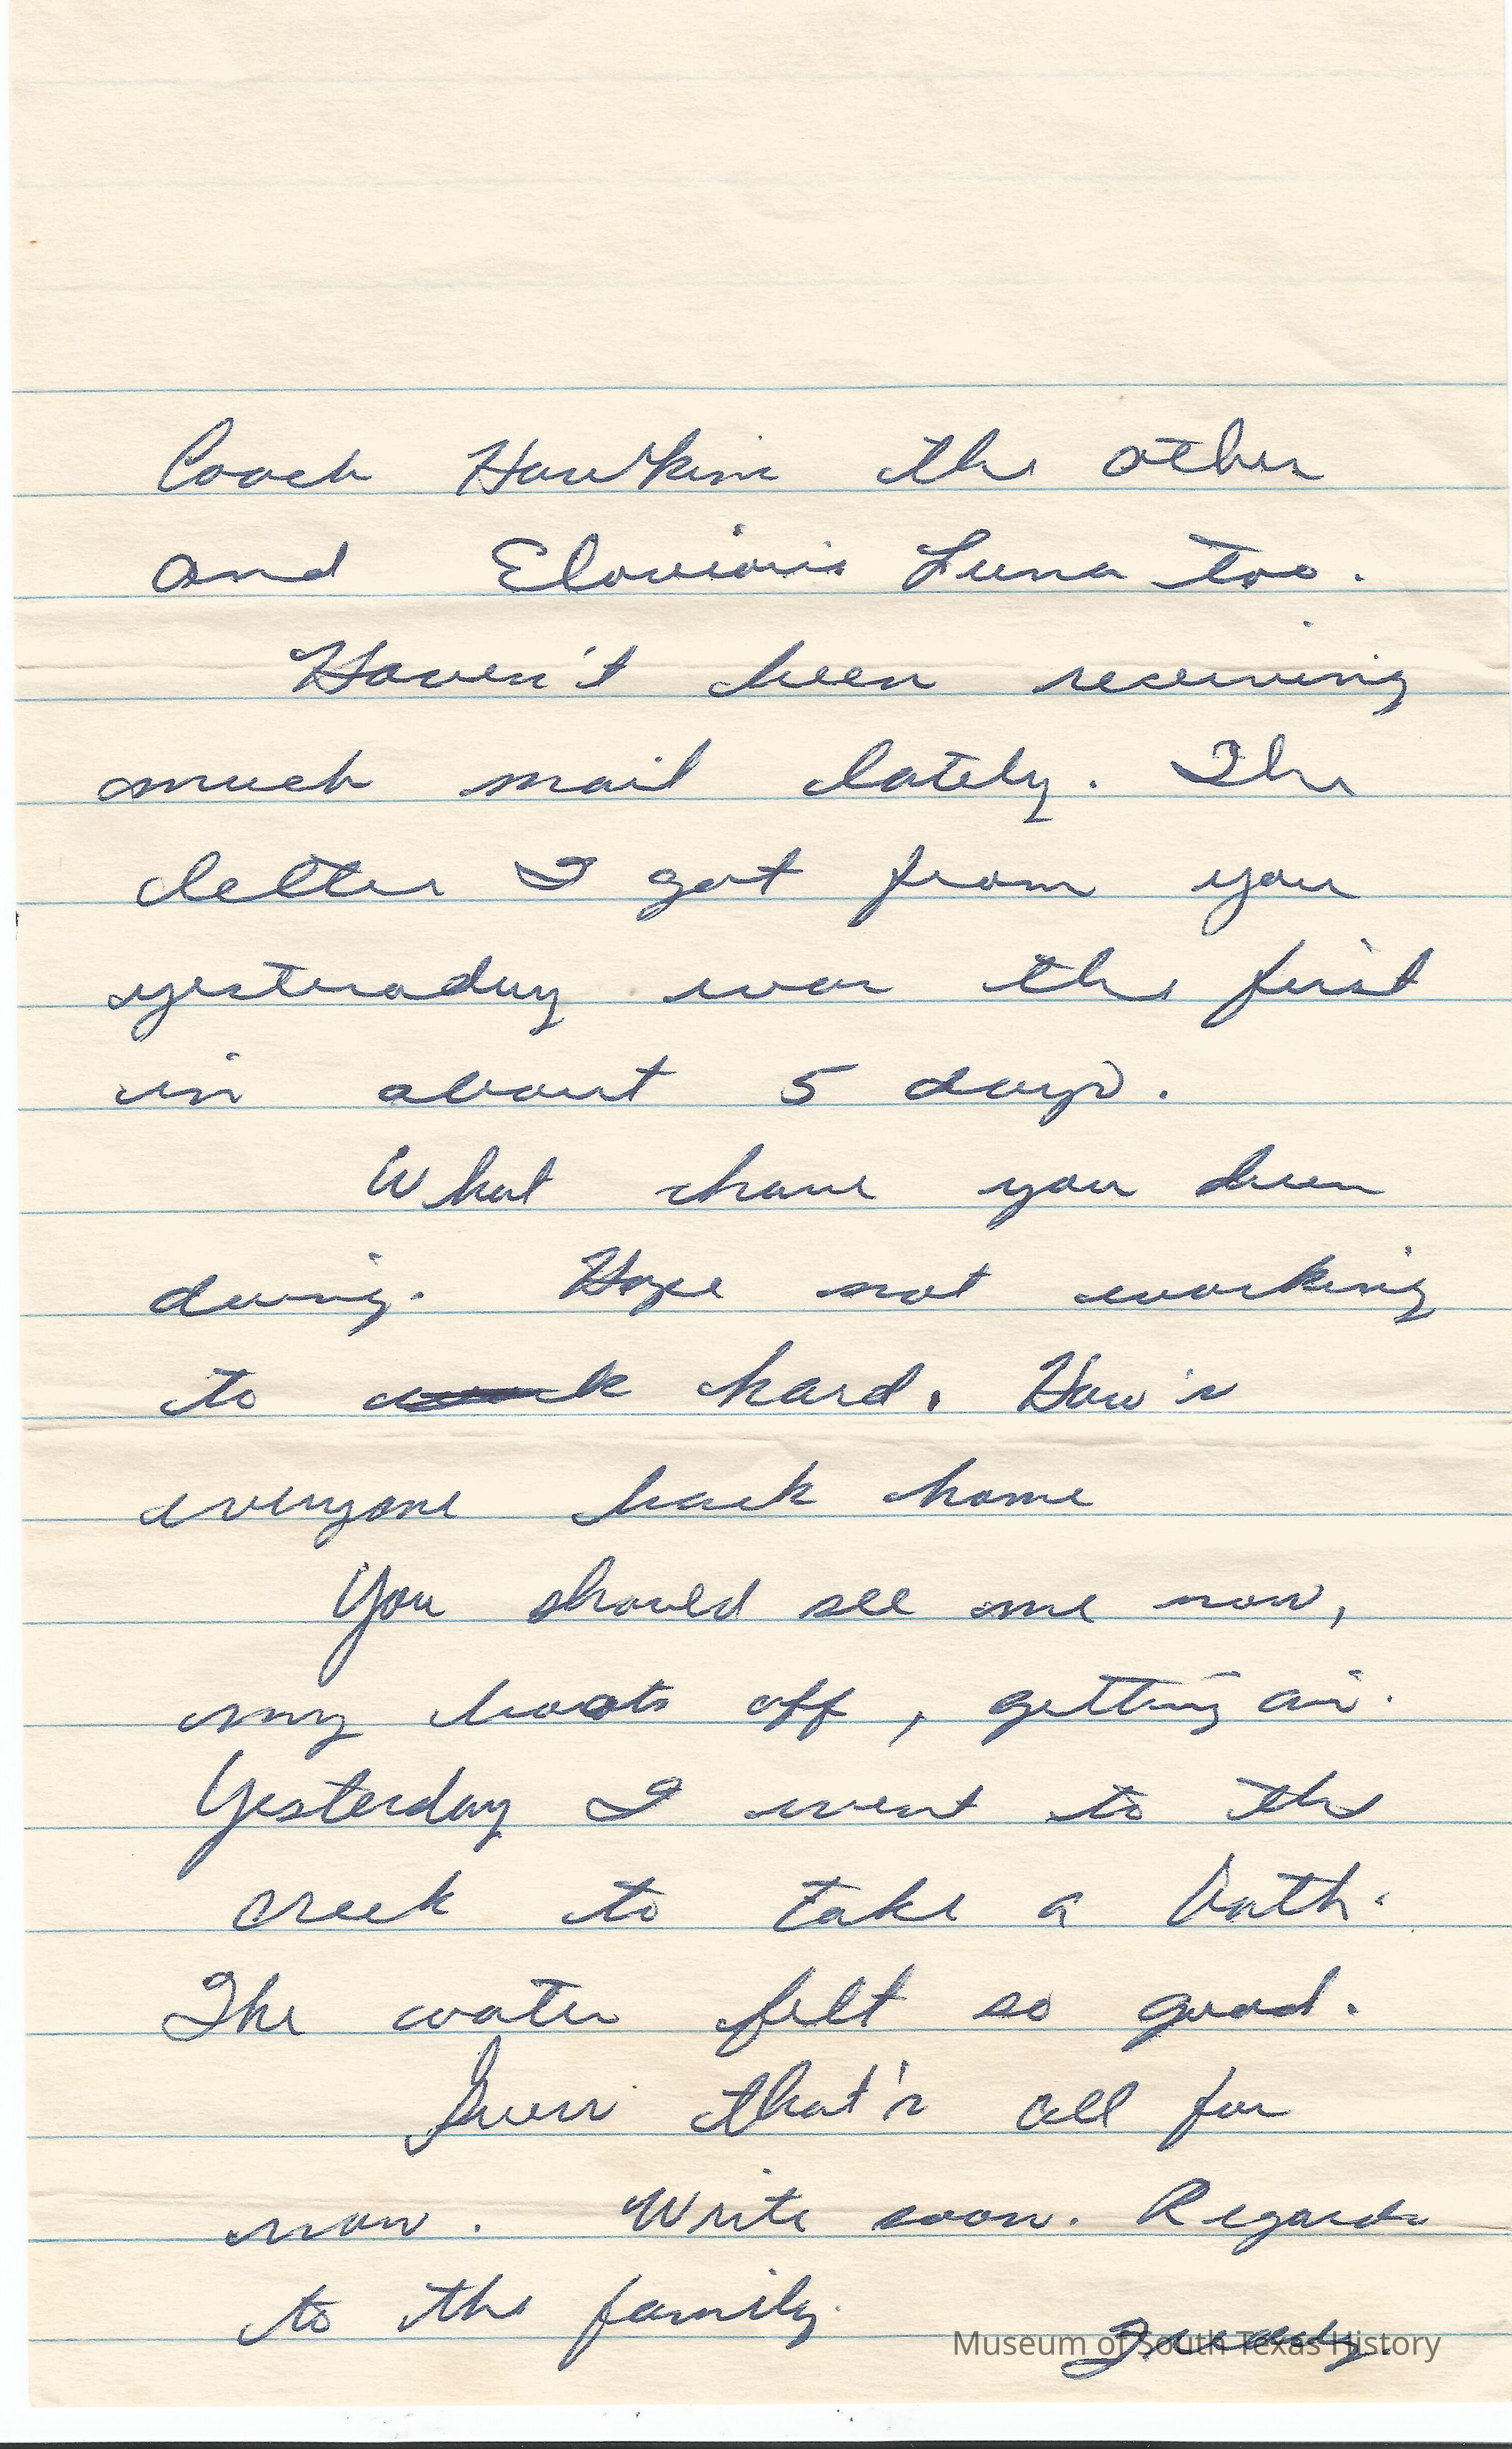 Coach Hawkins the other
and Luna too.
Haven't been receiving
much mail lately. The
letter I got from you
yesteraday was the first
in about 5 days.
What have you been
doing. Hope not working
to work hard. How's
everyone back home
You should see me now,
my boots off, getting air.
Yesterday I went to the
creek to take a bath.
The water felt so good.
Guess that's all for
now. Write soon. Regards
to the family.
Museum of South Texas History